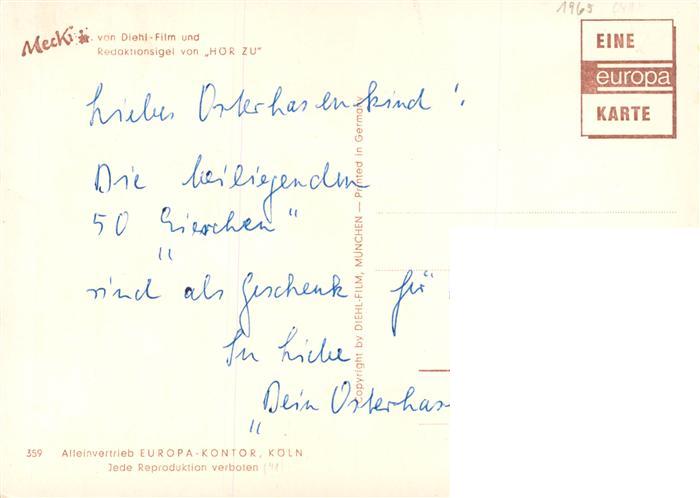 1965
Mecki von Diehl-Film und
Redaktionsigel von „HÖR ZU"
EINE
europa
KARTE
Liebes Osterhasenkind!
Die beiliegenden
50 „Eierchen"
sind als Geschenk für
In Liebe
„Dein Osterhas
Copyright by DIEHL-FILM, MÜNCHEN — Printed in Germany
359 Alleinvertrieb EUROPA-KONTOR, KÖLN
Jede Reproduktion verboten (41)